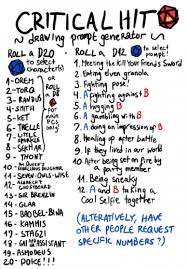 CRITICAL HIT
~ drawing prompt generator ~
ROLL A D20
to select
character(s)
OR
ROLL
a D8
for
main PCs
only!
1-OREM
2-TORQ
3-RANDUS
4-SMITH
5-KET
6-THELLE
7-LITTLE
SPARROW
8-SEKMAR
9-THONY
11-
12-
13-SIR BRECKLIN
14-GLAA
15-BADBEL-BIWA
16-KAMMIS
17-SITAGI
18-
ASSISTANT
19-ASMODEUS
20-DOICE!!!
ROLL A D12
to select
prompt!
1. Meeting the Kill Your Friends Sword
2. Eating elven granola
3. Fighting pose!
4. A fighting against B
5. A hugging B
6. A gambling with B
7. A doing an impression of B
8. Healing up after battle
9. If they lived in our world
10. After being set on fire
by a party member
11. Being sneaky
12. A and B taking a
Cool Selfie together
(ALTERNATIVELY, HAVE
OTHER PEOPLE REQUEST
SPECIFIC NUMBERS?)